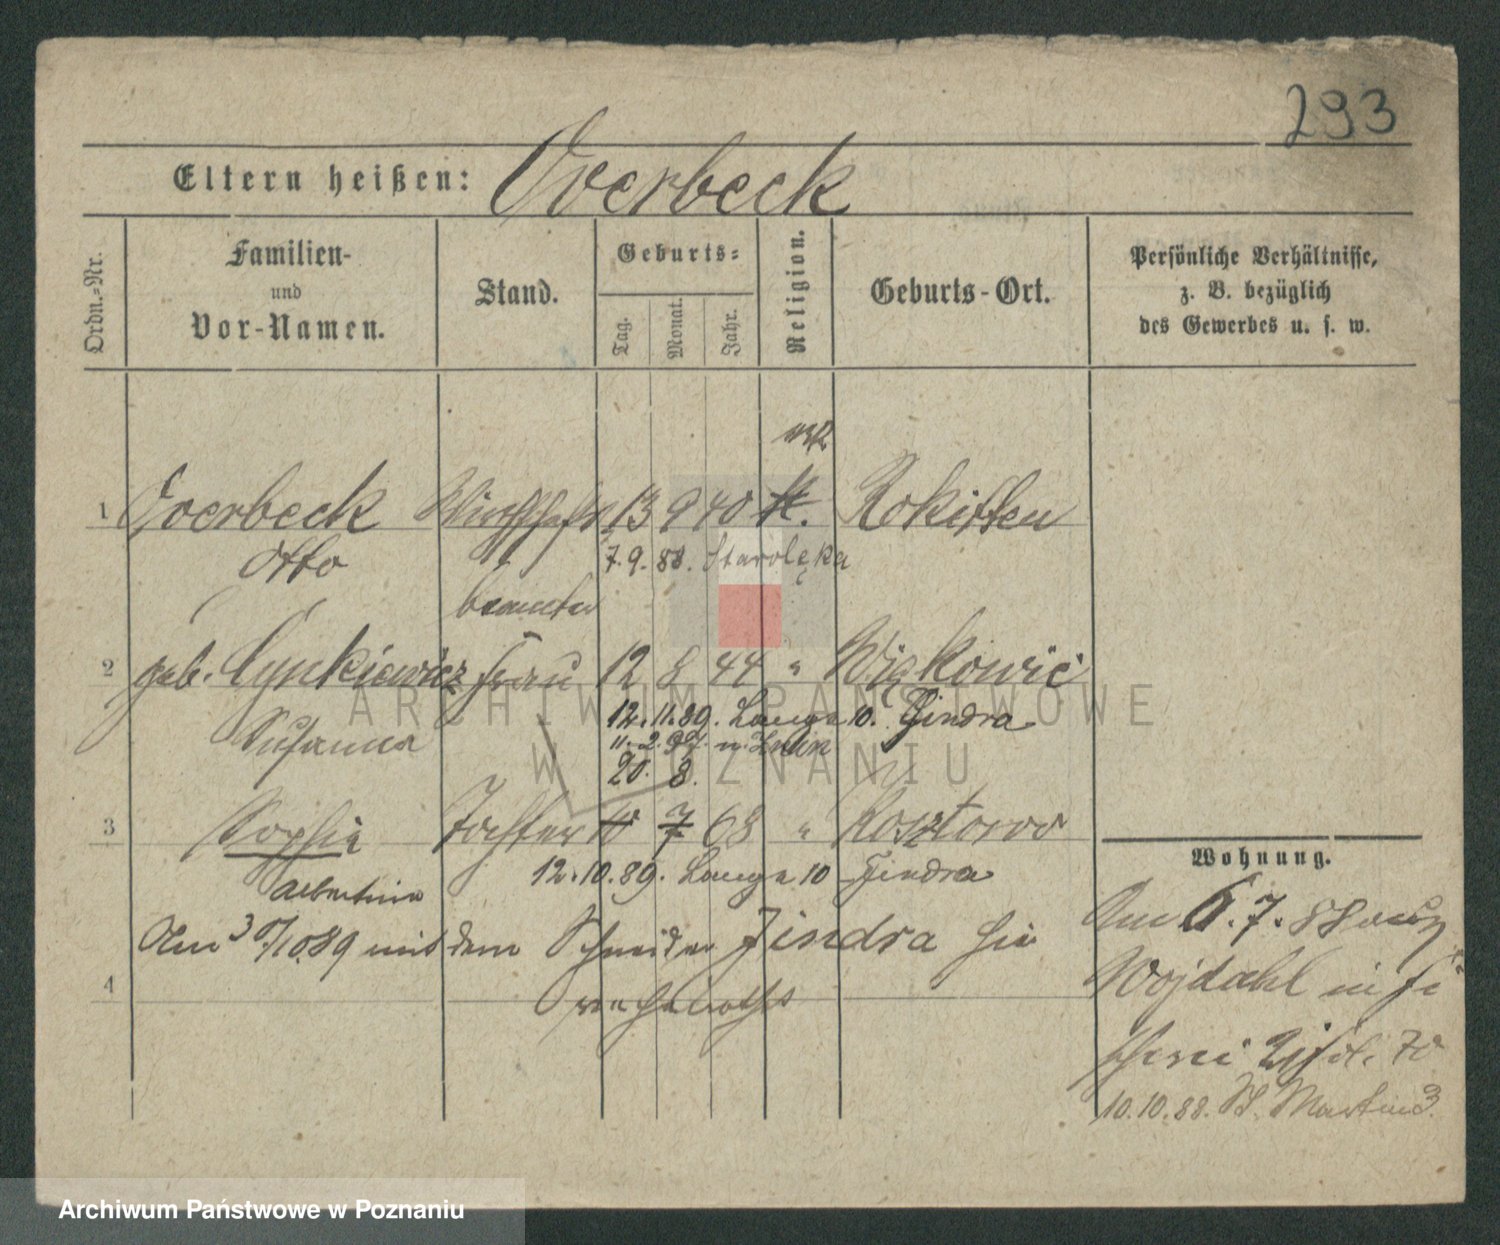 293
Eltern heißen: Overbeck
Ordn.-Nr.
Familien-
und
Vor-Namen.
Stand.
Geburts-
Tag.
Monat.
Jahr.
Religion.
Geburts-Ort.
Persönliche Verhältnisse,
z. B. bezüglich
des Gewerbes u. s. w.
1 Overbeck Wirthschafts 13 9 40 k. Rokitten
Otto 7.9.88. Starolęka
beamter
2 geb. Cynkiewicz Frau 12 8 44 " Więkowic
12.11.89. Lange 10. Jindra
Susanna 11.2.97.
20. 8.
3 Sophie Tochter 10 7 68 " Kosztowo
12.10.89. Lange 10 Jindra
Albertine
Am 3/10 89 mit dem Schneider Jindra hie
4 verheirathet
Wohnung.
Am 6.7.88 aus
Wojdahl in Fi
scherei 70
10.10.88. St. Martin 3.
ARCHIWUM PAŃSTWOWE
W POZNANIU
Archiwum Państwowe w Poznaniu